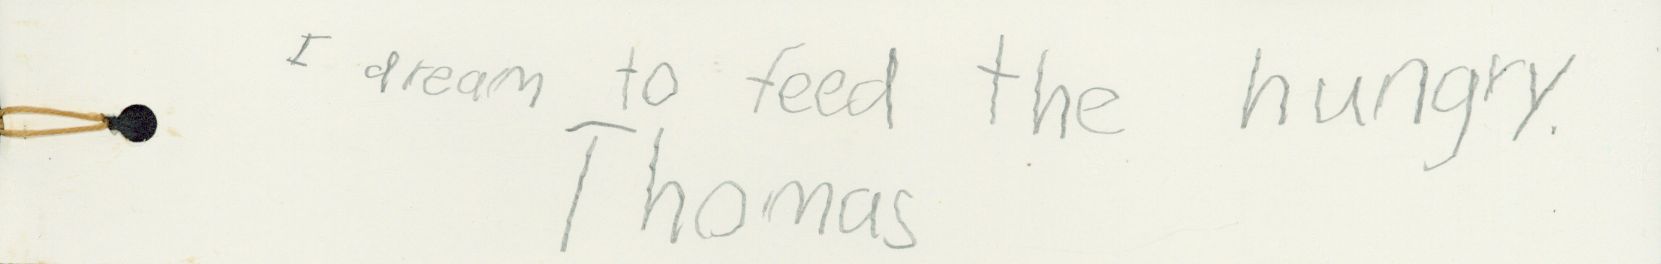 I dream to feed the hungry.
Thomas